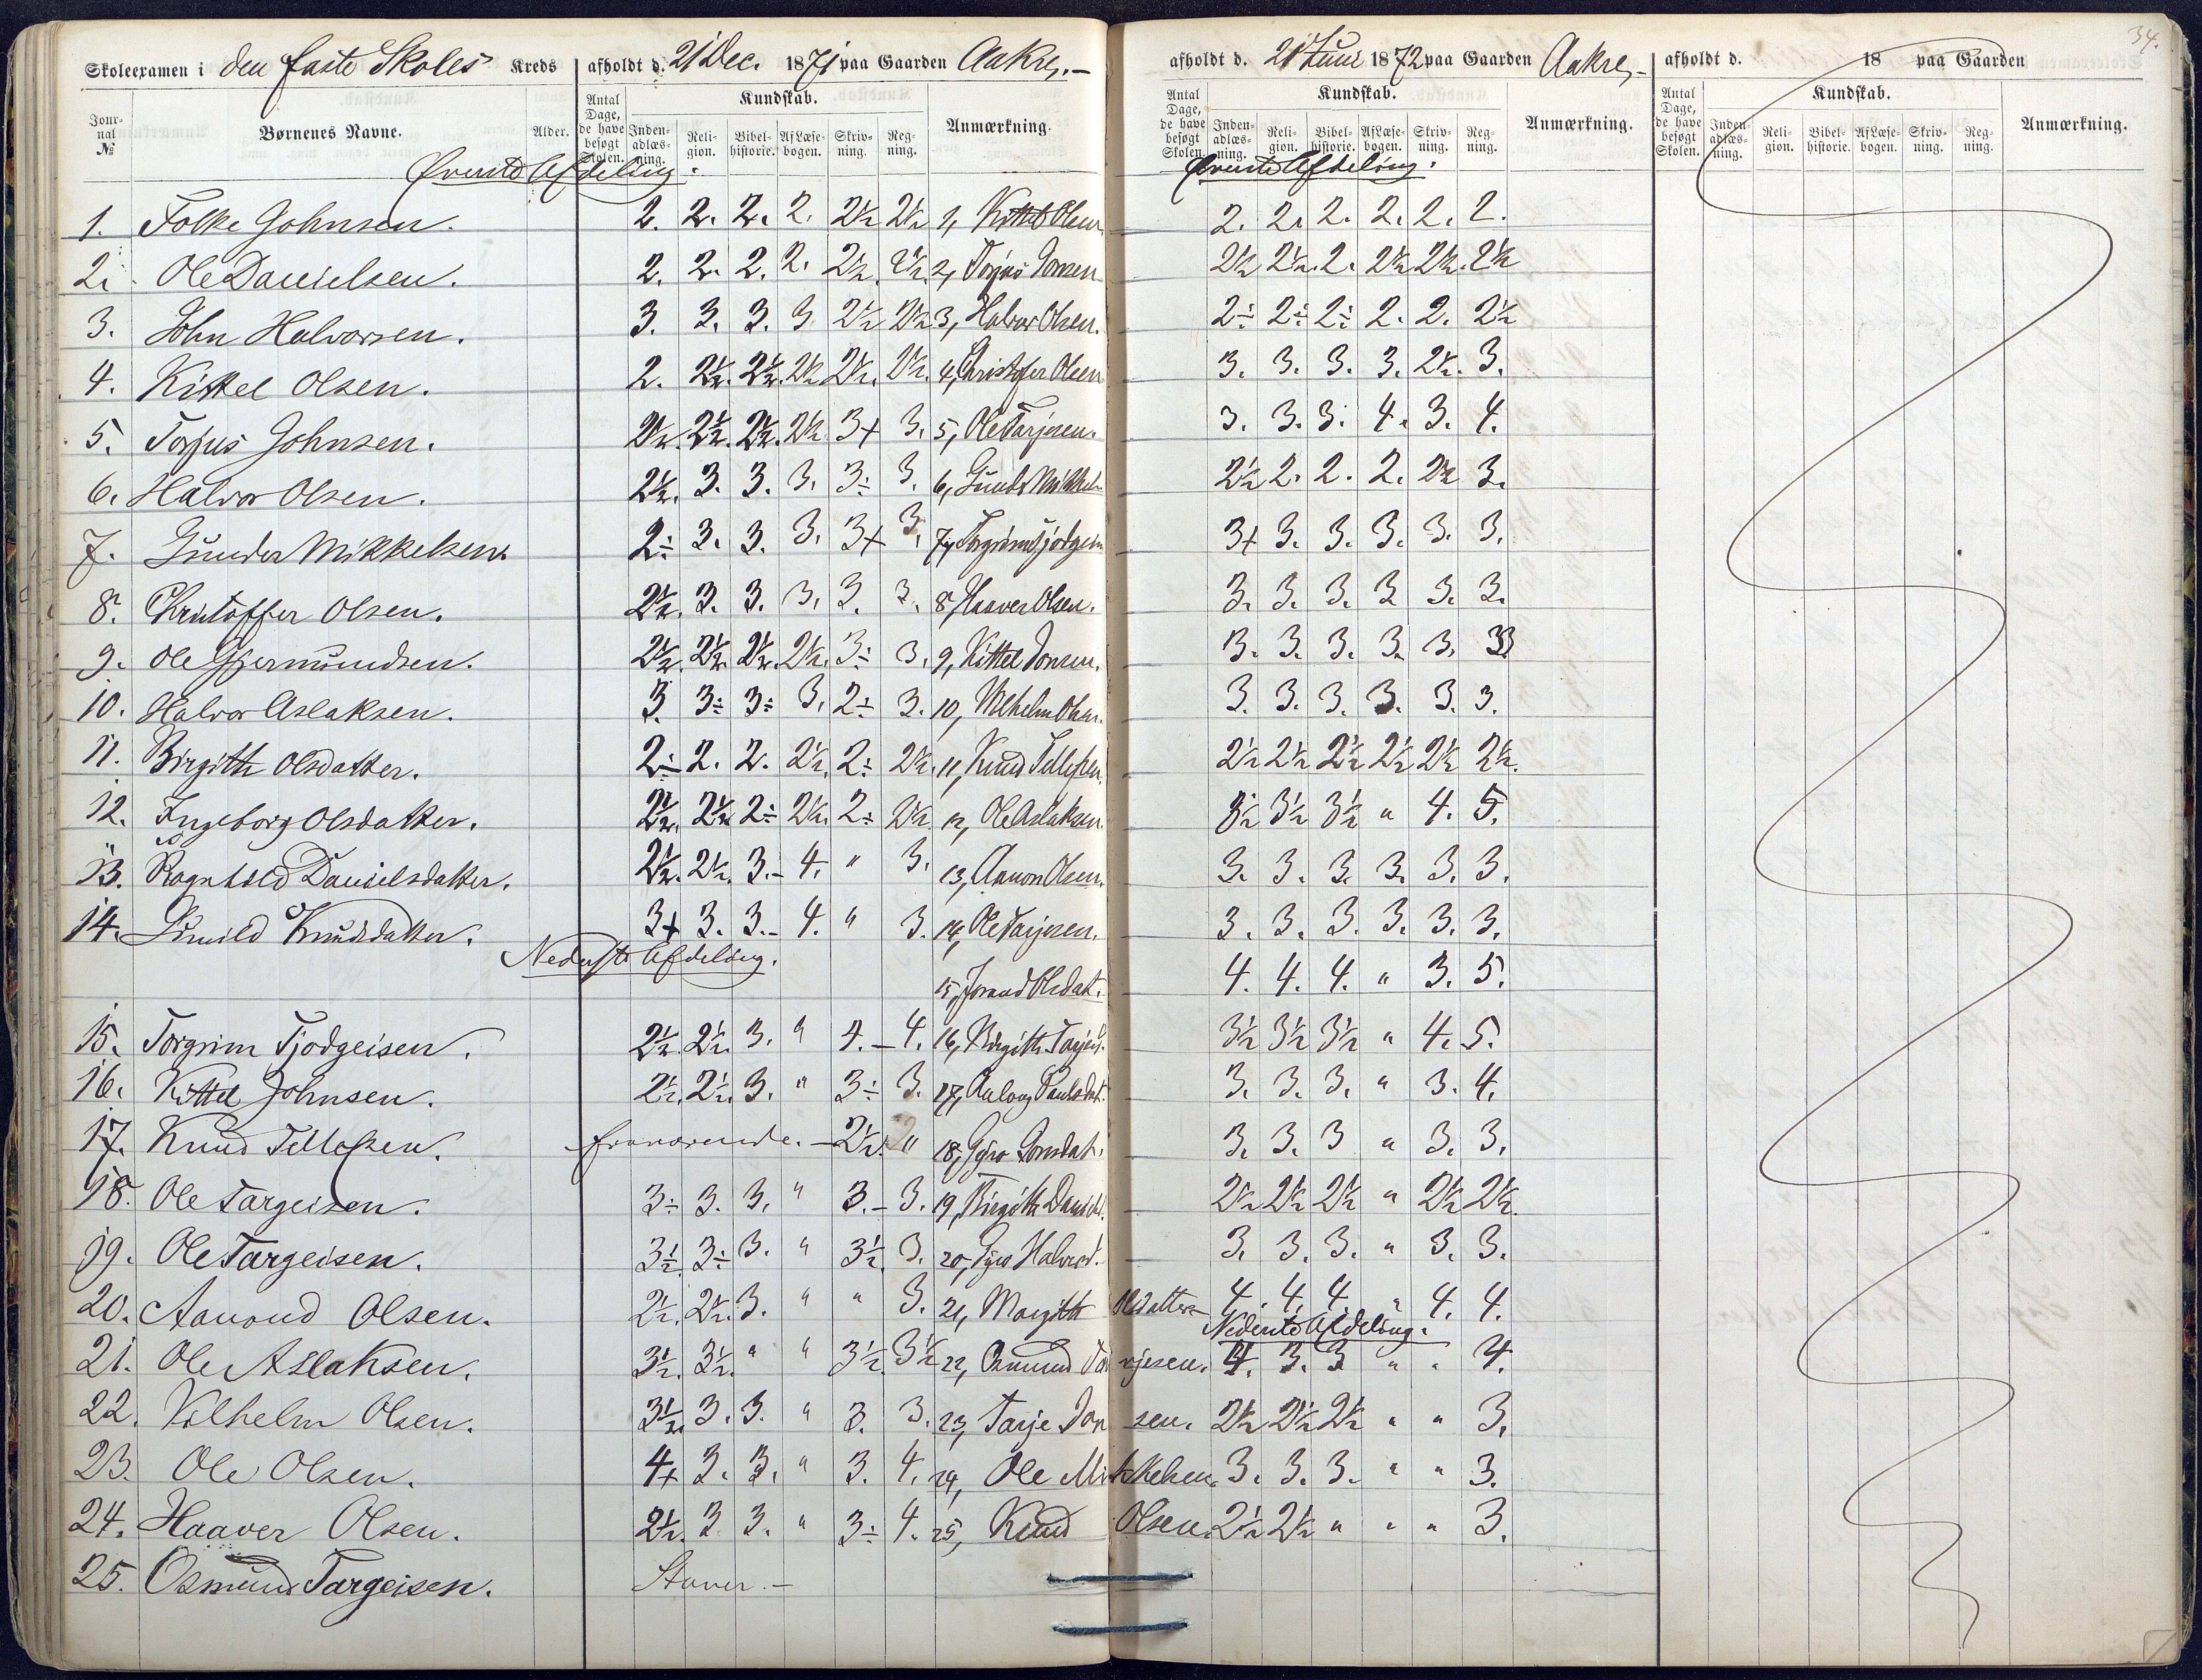 34.
Skoleexamen i den faste Skoles Kreds afholdt d. 21 Dec. 1871 paa Gaarden Aakre,.- afholdt d. 21 Juni 1872 paa Gaarden Aakre,- afholdt d. 18 paa Gaarden
Journal № Børnenes Navne. Alder. Antal Dage, de have besøgt Skolen. Kundskab. Indenadlæsning. Religion. Bibelhistorie. Af Læsebogen. Skrivning. Regning. Anmærkning.
Antal Dage, de have besøgt Skolen. Kundskab. Indenadlæsning. Religion. Bibelhistorie. Af Læsebogen. Skrivning. Regning. Anmærkning.
Antal Dage, de have besøgt Skolen. Kundskab. Indenadlæsning. Religion. Bibelhistorie. Af Læsebogen. Skrivning. Regning. Anmærkning.
Øverste Afdeling. Øverste Afdeling.
1. Folke Johnsen. 2. 2. 2. 2. 2½ 2½ 1, Kittel Olsen 2. 2. 2. 2. 2. 2.
2. Ole Danielsen. 2. 2. 2. 2. 2½. 2½. 2, Torjus Jonsen 2½ 2½. 2. 2½ 2½. 2½
3. John Halvorsen. 3. 3. 3. 3 2½ 2½ 3, Halvor Olsen. 2÷ 2÷ 2÷ 2. 2. 2½
4. Kittel Olsen. 2. 2½. 2½. 2½ 2½. 2½. 4, Christofer Olsen 3. 3. 3. 3. 2½. 3.
5. Torjus Johnsen. 2½. 2½. 2½. 2½. 3+ 3. 5, Ole Tarjesen. 3. 3. 3. 4. 3. 4.
6. Halvor Olsen. 2½. 3. 3. 3. 3÷ 3. 6, Gunder Mikkels 2½ 2. 2. 2. 2½ 3.
7. Gunder Mikkelsen. 2÷ 3. 3. 3. 3+ 3. 7, Torgrim Tjodgeis 3+ 3. 3. 3. 3. 3.
8. Christoffer Olsen. 2½. 3. 3. 3. 3. 3. 8, Haaver Olsen. 3. 3. 3. 3 3. 3.
9. Ole Gjermundsen. 2½. 2½. 2½. 2½. 3÷ 3. 9, Kittel Jonsen. 3. 3. 3. 3. 3. 3
10. Halvor Aslaksen. 3. 3÷ 3÷ 3. 2÷ 3. 10, Vilhelm Olsen. 3. 3. 3. 3. 3. 3.
11. Birgith Olsdatter. 2÷ 2. 2. 2½. 2÷ 2½. 11, Knud Tellefsen. 2½ 2½ 2½ 2½ 2½ 2½.
12. Ingeborg Olsdatter. 2½. 2½ 2÷ 2½. 2÷ 2½. 12, Ole Aslaksen. 3½ 3½ 3½ " 4. 5.
13. Ragnhild Danielsdatter. 2½. 2½. 3.- 4. " 3. 13, Aanon Olsen. 3. 3. 3. 3. 3. 3.
14. Sunild Knudsdatter. 3+ 3. 3.- 4. " 3. 14, Ole Tarjesen. 3. 3. 3. 3. 3. 3.
Nederste Afdeling. 15, Jorand Olsdat. 4. 4. 4. " 3. 5.
15. Torgrim Tjodgeisen. 2½. 2½. 3. " 4.- 4. 16, Birgith Tarjeis. 3½ 3½ 3½ " 4. 5.
16. Kittel Johnsen. 2½. 2½. 3. " 3÷ 3. 17, Asloug Paulsdat. 3. 3. 3. " 3. 4.
17. Knud Tellefsen. fraværende.- 2½. " 18, Gyro Jonsdat. 3. 3. 3 " 3. 3.
18. Ole Targeisen. 3÷ 3. 3. " 3.- 3. 19, Birgith Danield. 2½ 2½ 2½ " 2½ 2½.
19. Ole Targeisen. 3½. 3÷ 3. " 3½. 3. 20, Gyro Halvord. 3. 3. 3. " 3. 3.
20. Aanond Olsen. 2½. 2½. 3. " " 3. 21, Margith Olsdatter 4. 4. 4. " 4. 4.
Nederste Afdeling.
21. Ole Aslaksen. 3½. 3½. " " 3½. 3½ 22, Osmund Tarjesen. 4. 3. 3 " " 4.
22. Vilhelm Olsen. 3½. 3. 3. " 3. 3. 23, Tarje Jonsen. 2½ 2½ 2½ " " 3.
23. Ole Olsen. 4+ 3. 3. " 3. 4. 24, Ole Mikkelsen. 3. 3. 3. " " 3.
24. Haaver Olsen. 2½. 3 3. " 3÷ 4. 25, Knud Olsen. 2½ 2½ " " " 3.
25. Osmund Targeisen. Staver.-